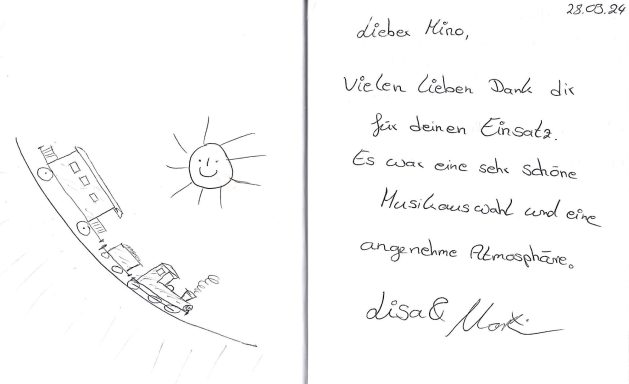 28.03.24
Lieber Mino,
Vielen lieben Dank dir
für deinen Einsatz.
Es war eine sehr schöne
Musikauswahl und eine
angenehme Atmosphäre.
Lisa &